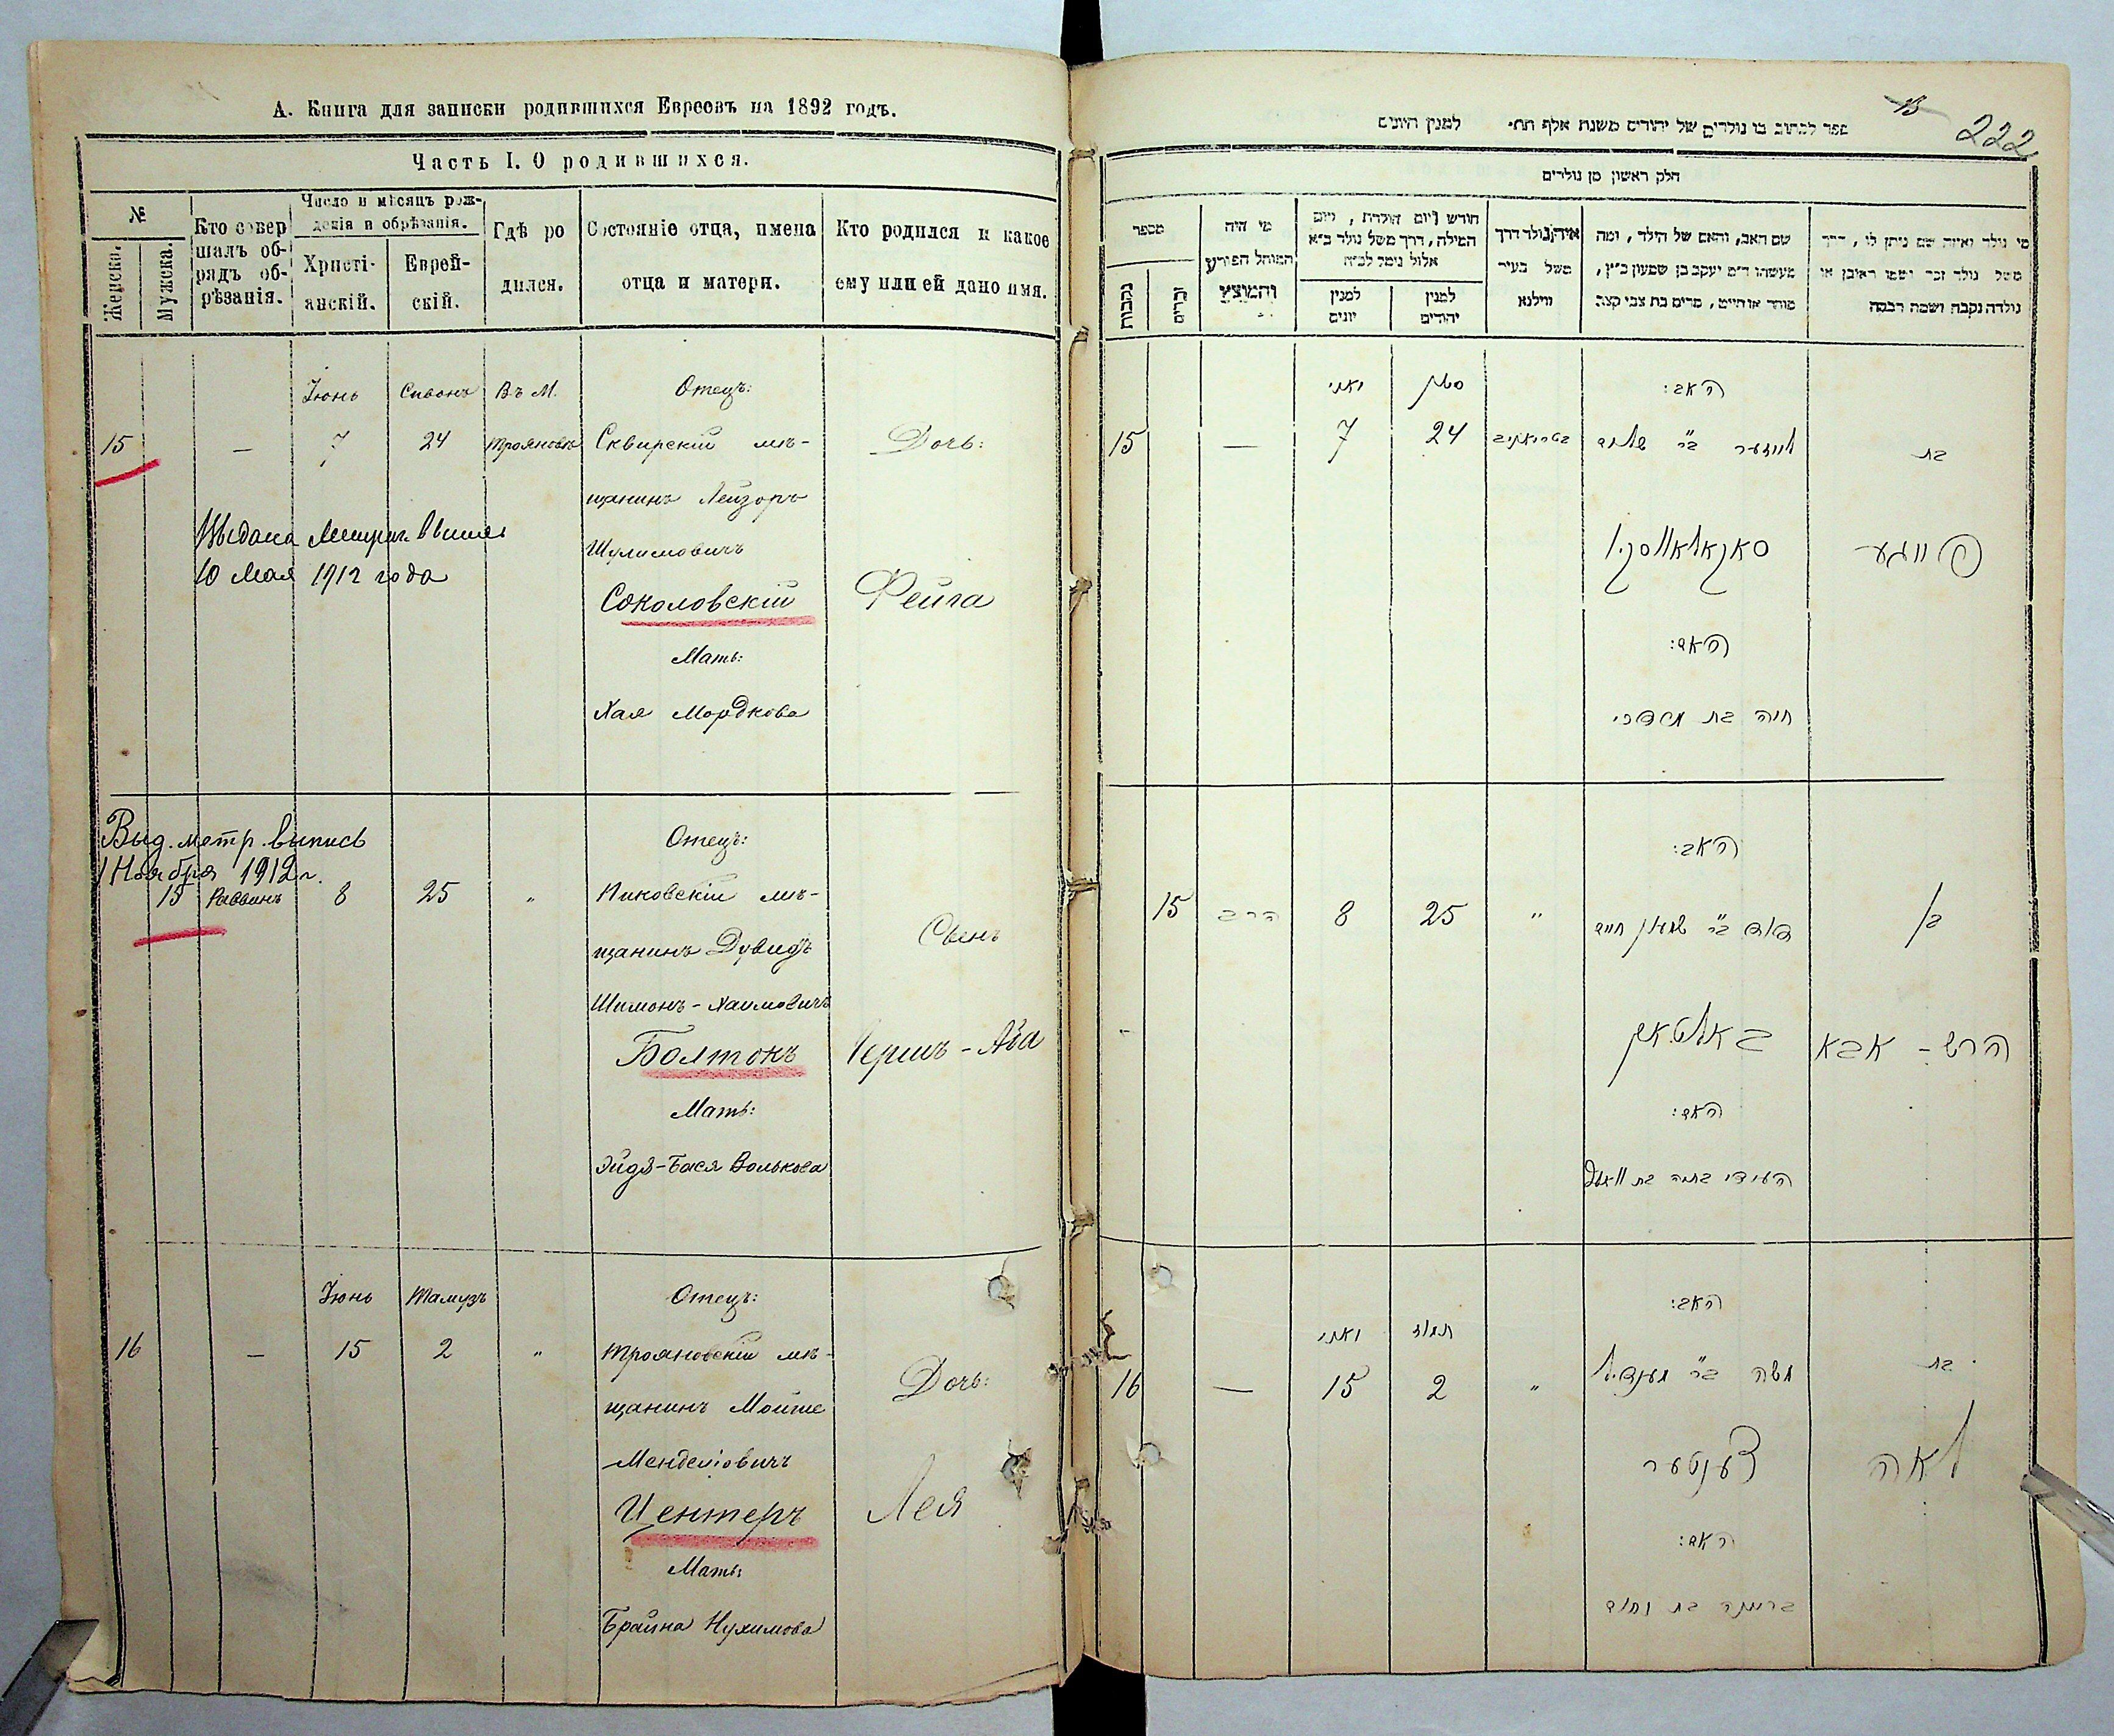 А. Книга для записки родившихся Евреевъ на 1892 годъ.
Часть I. О родившихся.
№
Женска.
Мужска.
Кто совер
шалъ об-
рядъ об-
рѣзанія.
Число и мѣсяцъ рож-
денія и обрѣзанія.
Христі-
анскій.
Еврей-
скій.
Гдѣ ро
дился.
Состояніе отца, имена
отца и матери.
Кто родился и какое
ему или ей дано имя.
Іюнь Сивонъ Въ М. Отецъ:
15 — 7 24 Трояновѣ Сквирскій мѣ- Дочь:
щанинъ Лейзоръ
Выдана Метрич. выпись
Шулимовичъ
10 Мая 1912 года
Соколовскій Фейга
Мать:
Хая Мордкова
Выд. метр. выпись
1 Ноября 1912 г.
Отецъ:
15 Раввинъ 8 25 " Пиковскій мѣ-
щанинъ Дувидъ Сынъ
Шимонъ-Хаимовичъ
Болтонъ Гершъ-Аба
Мать:
Эйдя-Бася Волькова
Іюнь Тамузъ Отецъ:
16 — 15 2 " Трояновскій мѣ-
щанинъ Мойше Дочь:
Менделіовичъ
Центеръ Лея
Мать:
Брайна Нухимова
222
ספר לכתוב בו נולדים של יהודים משנת אלף תתי למנין היונים
חלק ראשון מן נולדים
מספר
נקבות
זכרים
מי היה
המוהל הפורע
והמוצץ
חודש ויום הולדת, ויום
המילה, דרך משל נולד ב״א
אלול נימל לב״ה
למנין
יונים
למנין
יהודים
איה נולד דרך
משל בעיר
ווילנא
שם האב, והאם של הילד, ומה
מעשהו ד״מ יעקב בן שמעון כ״ץ,
סוחר או חייט, מרים בת צבי קצב
מי נולד ואיזה שם ניתן לו, דרך
משל נולד זכר ושמו ראובן או
נולדה נקבה ושמה רבקה
יאני סיון האב:
15 — 7 24 לייזער ב״ר שלום בת
סאקאלאווסקי פייגע
האם:
חיה בת מרדכי
האב:
15 הרב 8 25 " דוד ב״ר שמעון חיים בן
באלטאן הרש - אבא
האם:
האב:
יאני תמוז
16 — 15 2 " משה ב״ר מענדיל בת
צענטער לאה
האם:
בריינה בת נחום